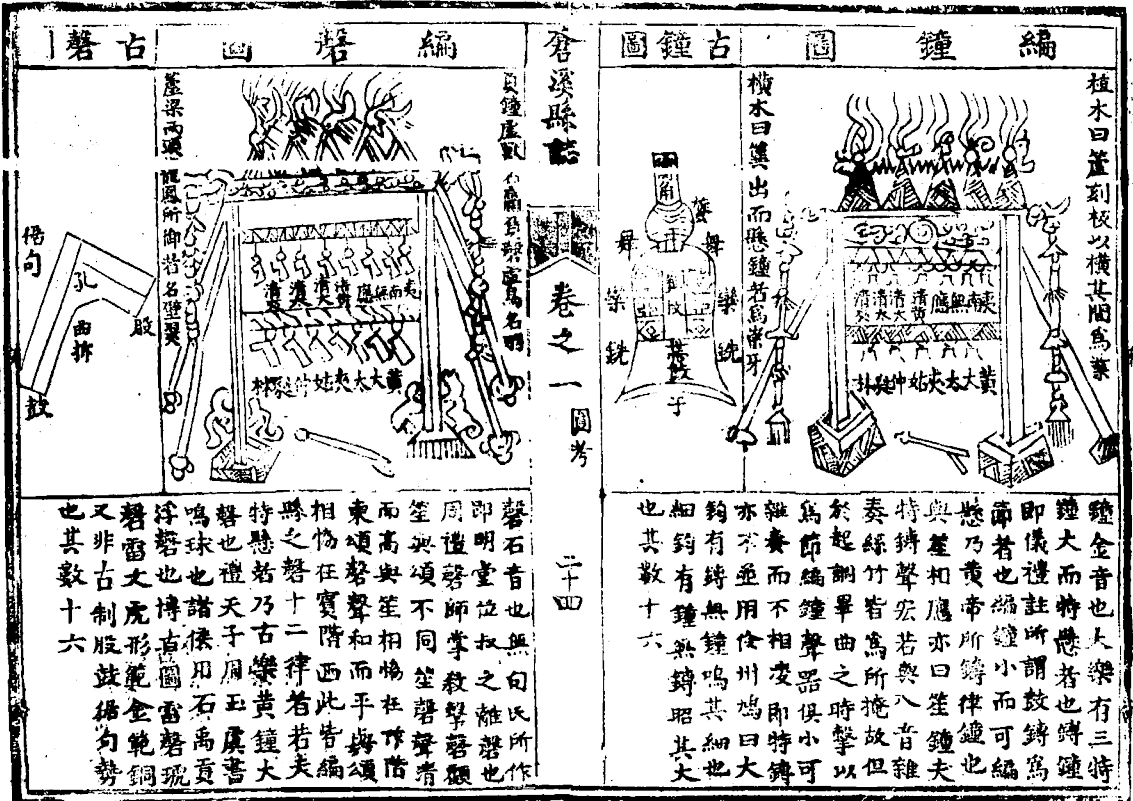 編鐘圖
植木曰簴刻板以橫其間爲業
橫木曰簨出而懸鐘者爲崇牙
清夾
清太
清大
清黃
應
無
南
夷
林
蕤
仲
姑
夾
太
大
黃
古鐘圖
甬
舞
母
母
欒
欒
銑
銑
于
鐘金音也大樂有三特
鐘大而特懸者也鎛鐘
即儀禮註所謂鼓鎛爲
節者也編鐘小而可編
懸乃黃帝所鑄律鐘也
與笙相應亦曰笙鐘夫
特鎛聲宏若與八音雜
奏絲竹皆爲所掩故但
於起調畢曲之時擊以
爲節編鐘聲器俱小可
雜奏而不相凌即特鎛
亦不並用伶州鳩曰大
鈞有鎛無鐘鳴其細也
細鈞有鐘無鎛昭其大
也其數十六
蒼溪縣誌
卷之一
圖考
二十四
編磬圖
簴梁兩頭龍鳳所御者名壁翣
清夾
清太
清大
清黃
應
無
南
夷
林
蕤
仲
姑
夾
太
大
黃
古磬圖
倨句
孔
股
鼓
磬石音也無句氏所作
即明堂位叔之離磬也
周禮磬師掌教擊磬頌
笙與頌不同笙磬聲清
而高與笙相協在阼階
東頌磬聲和而平與頌
相協在賓階西此皆編
縣之磬十二律者若夫
特懸者乃古樂黃鐘大
磬也禮天子用玉虞書
鳴球也諸侯用石禹貢
浮磬也博古圖雷磬琥
磬雷文虎形範金範銅
又非古制股鼓倨句勢
也其數十六